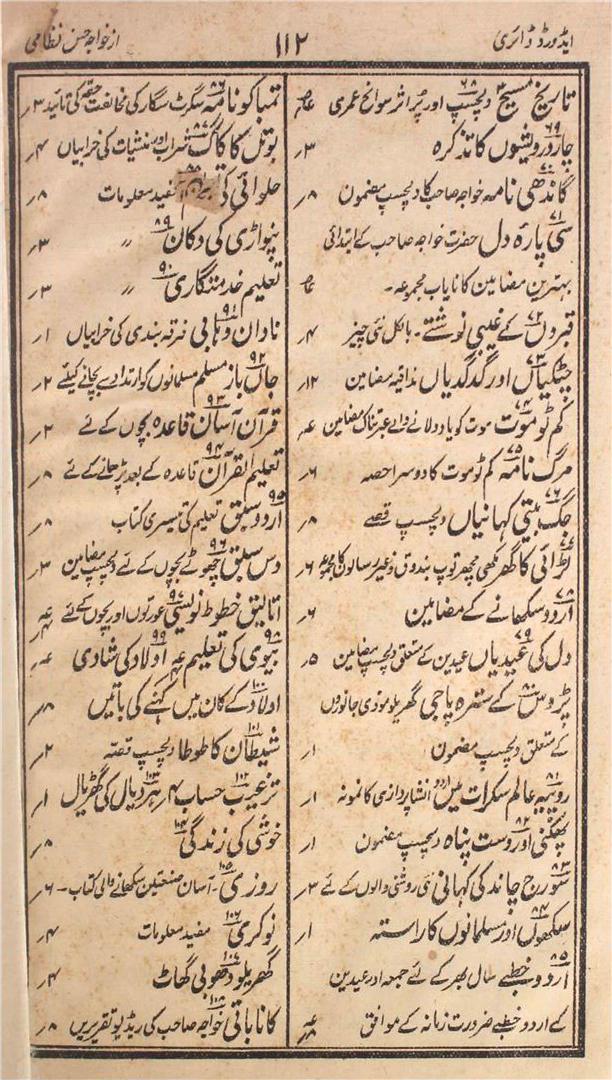 ایڈورڈ ڈائری
۱۱۲
از خواجہ حسن نظامی
۶۸ تاریخ مسیح دلچسپ اور پُر اثر سوانح عمری عہ
۶۹ چار درویشوں کا تذکرہ ۳ر
۷۰ گاندھی نامہ خواجہ صاحب کا دلچسپ مضمون ۸ر
۷۱ سی پارہ دل حضرت خواجہ صاحب کے ابتدائی
بہترین مضامین کا نایاب مجموعہ۔
۷۲ قبروں کے غیبی نوشتے۔ بالکل نئی چیز ۴ر
۷۳ چٹکیاں اور گدگدیاں مذاقیہ مضامین ۱۲ر
۷۴ کم ٹو موت موت کو یاد دلانے والے عبرتناک مضامین عہ
۷۵ مرگ نامہ کم ٹو موت کا دوسرا حصہ ۶ر
۷۶ جگ بیتی کہانیاں دلچسپ قصے ۸ر
۷۷ لڑائی کا گھر مکھی مچھر توپ بندوق وغیرہ رسالوں کا مجموعہ ۶ر
۷۸ اردو سکھانے کے مضامین ۶ر
۷۹ دل کی عیدیاں عیدین کے متعلق دلچسپ مضامین ۵ر
۸۰ پڑوس کے سترہ پاجی گھریلو موذی جانوروں
کے متعلق دلچسپ مضمون ۱ر
۸۱ روپیہ عالم سکرات میں اردو انشا پردازی کا نمونہ ۱ر
۸۲ پھکنی اور دست پناہ دلچسپ مضمون ۱ر
۸۳ سورج چاند کی کہانی نئی روشنی والوں کے لئے ۳ر
۸۴ سکھوں اور مسلمانوں کا راستہ ۱ر
۸۵ اردو خطبے سال بھر کے لئے جمعہ اور عیدین
کے اردو خطبے ضرورت زمانہ کے موافق عہ ۸ر
۸۶ تمباکو نامہ سگرٹ سگار کی مخالفت حقہ کی تائید ۳ر
۸۷ بوتل کا کاگ شراب اور منشیات کی خرابیاں ۴ر
حلوائی کی مفید معلومات ۸ر
۸۹ پنواڑی کی دکان ״ ۳ر
۹۰ تعلیم خدمتگاری ״ ۳ر
۹۱ نادان وہابی فرقہ بندی کی خرابیاں ۱ر
۹۲ جاں باز مسلم مسلمانوں کو ارتداد سے بچانے کیلئے ۲ر
۹۳ قرآن آسان قاعدہ بچوں کے لئے ۲ر
۹۴ تعلیم القرآن قاعدہ کے بعد پڑھانے کے لئے ۸ر
۹۵ اردو سبق تعلیم کی تیسری کتاب ۸ر
۹۶ دس سبق چھوٹے بچوں کے لئے دلچسپ مضامین ۳ر
۹۷ اتالیق خطوط نویسی عورتوں اور بچوں کے لئے عہ ۴ر
۹۸ بیوی کی تعلیم عہ ۹۹ اولاد کی شادی عہ
۱۰۰ اولاد کے کان میں کہنے کی باتیں ۸ر
۱۰۱ شیطان کا طوطا دلچسپ قصہ ۲ر
۱۰۲ ترغیب حساب ۴ر ۱۰۳ ہردیال کی گھڑیال ۱ر
۱۰۴ خوشی کی زندگی ۸ر
۱۰۵ روزی۔ آسان صنعتیں سکھانے والی کتاب۔ ۶ر
۱۰۶ نوکری مفید معلومات ۴ر
۱۰۷ گھریلو دھوبی گھاٹ ۴ر
۱۰۸ کانا باتی خواجہ صاحب کی ریڈیو تقریریں ۸ر